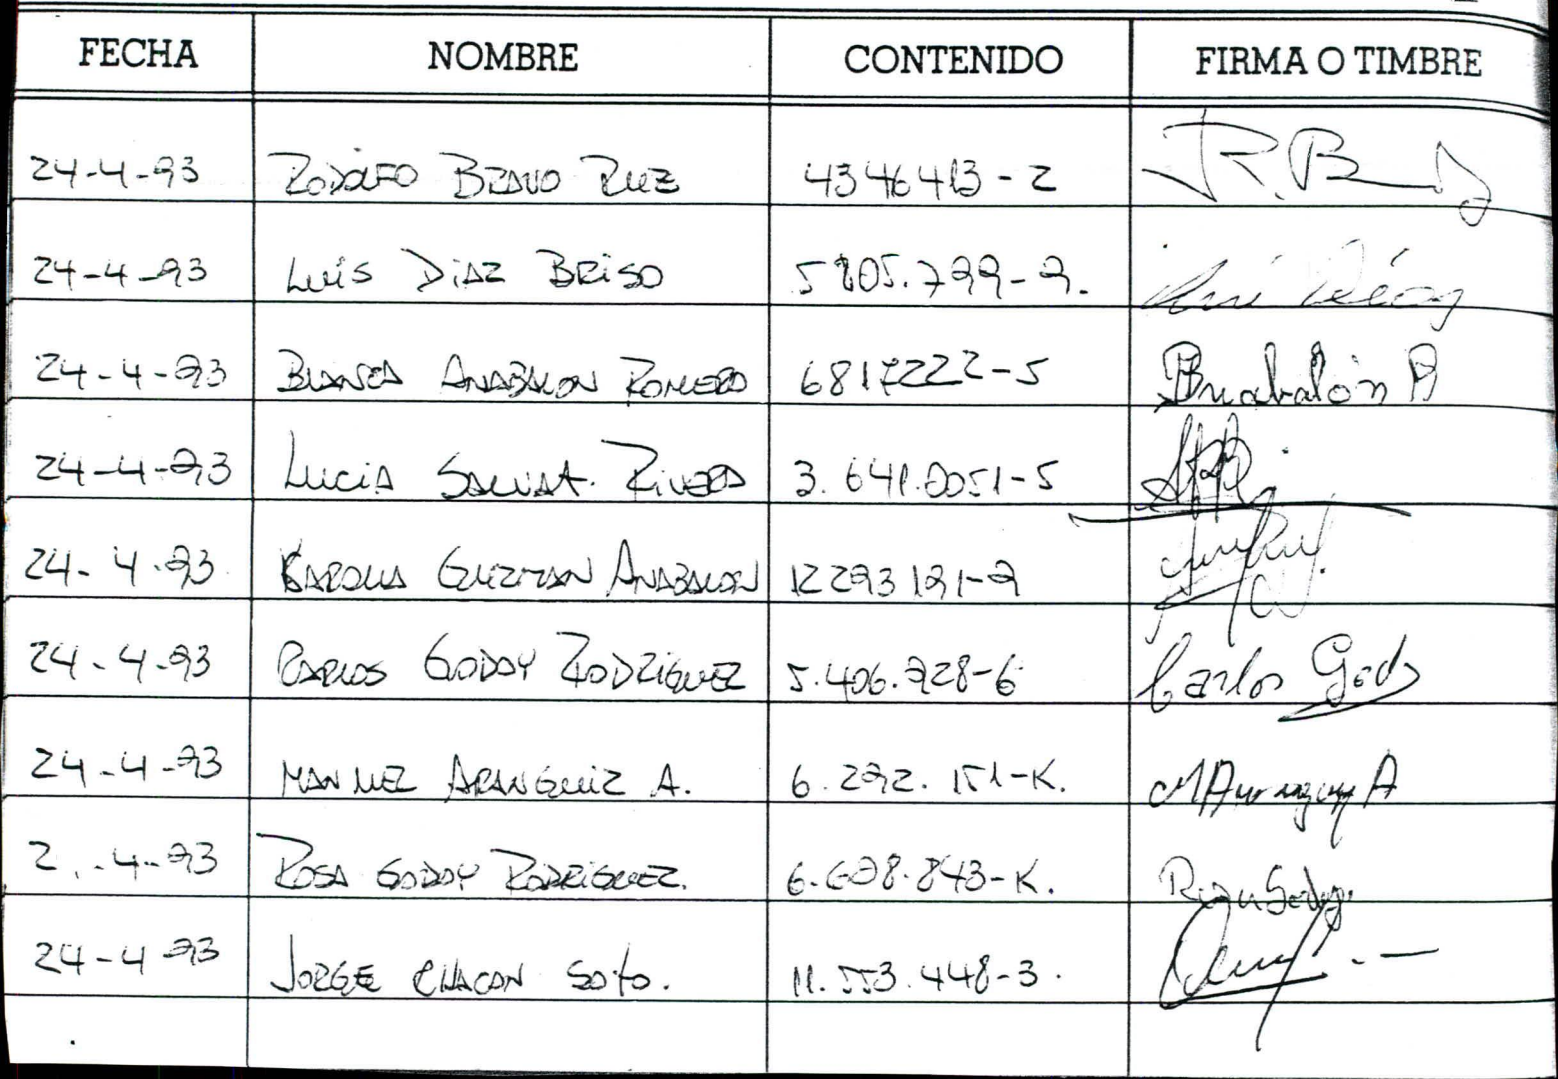 FECHA NOMBRE CONTENIDO FIRMA O TIMBRE
24-4-93 RODOLFO BRAVO RUZ 4346413-2 R.B
24-4-93 LUIS DIAZ BRISO 5805.799-9. Luis Díaz
24-4-93 BLANCA ANABALON ROMERO 6817222-5 Anabalón B
24-4-93 LUCIA SALVAT. RIVERA 3.641.0051-5
24-4-93 KAROLLA GUZMAN ANABALON 12293191-9
24-4-93 CARLOS GODOY RODRIGUEZ 5.406.928-6 Carlos Godoy
24-4-93 MANUEL ARANGUIZ A. 6.292.151-K.
2.-4-93 ROSA GODOY RODRIGUEZ. 6.608.843-K. Rosa Godoy.
24-4-93 JORGE CHACON SOTO. 11.553.448-3.